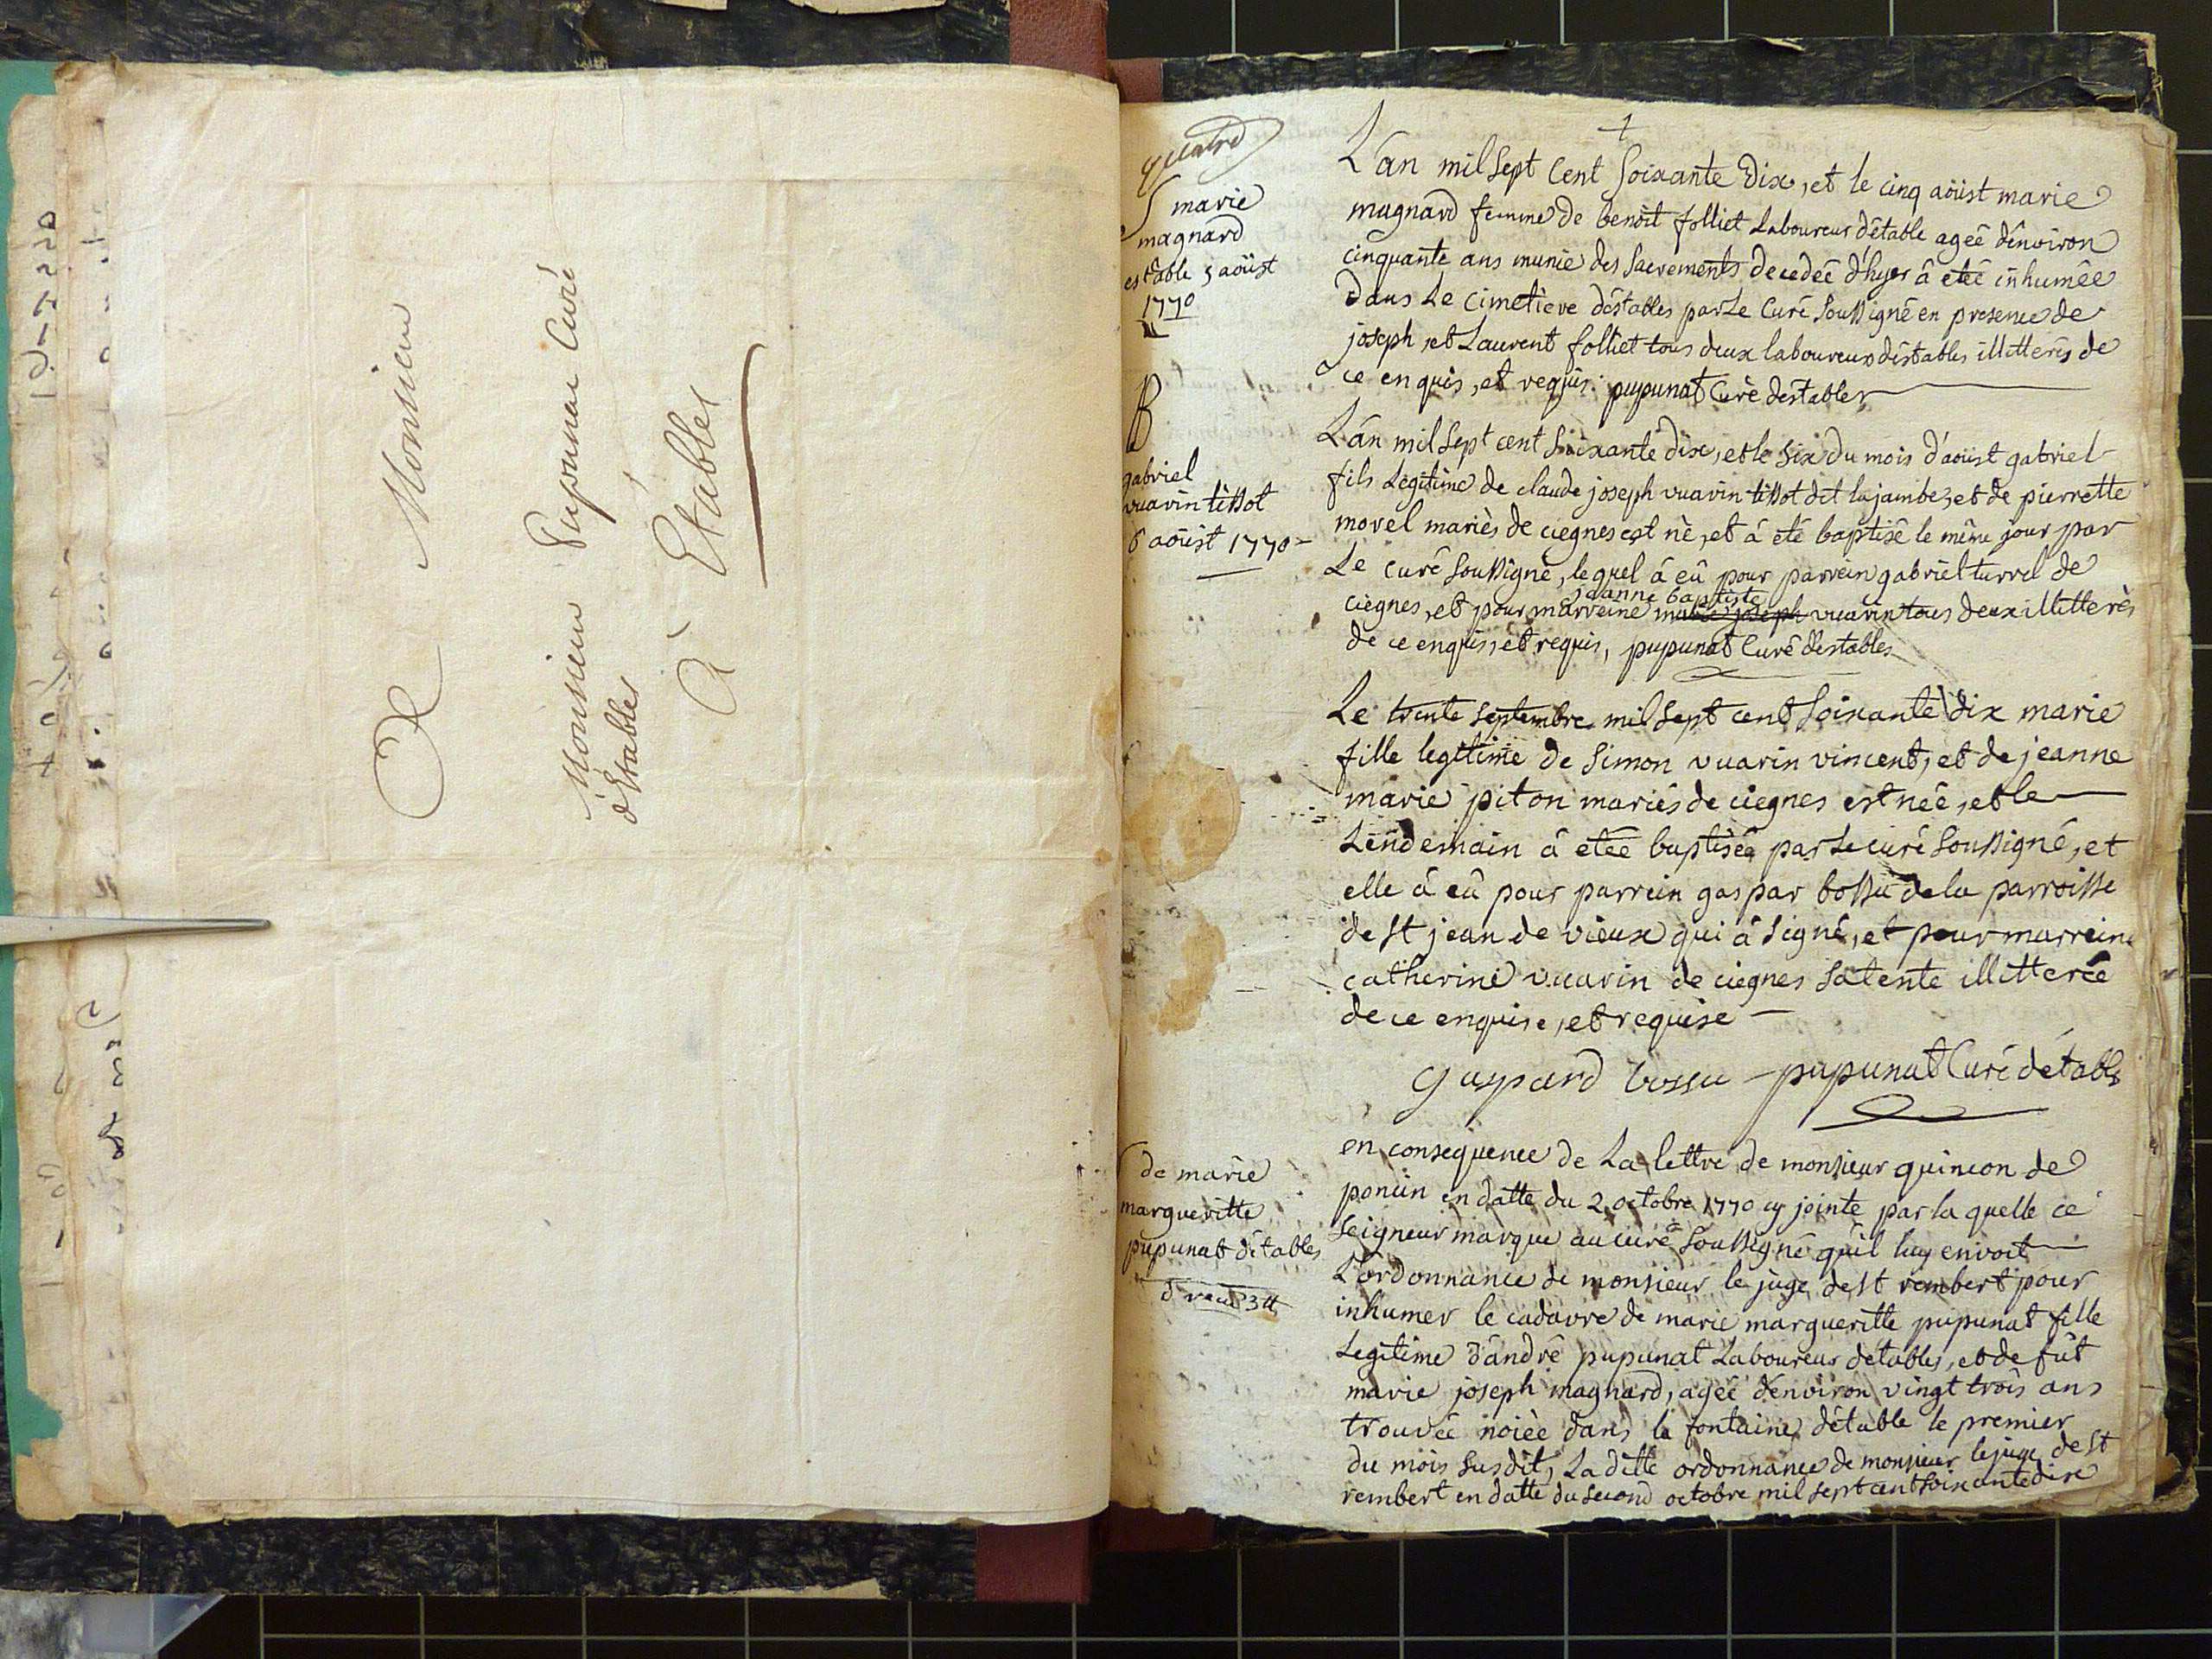 A Monsieur
Monsieur Pupunat Curé
d'Etables
A Etables
quatre
S marie
magnard
estable 5 aöust
1770
B
gabriel
vuarin tissot
6 aöust 1770
de marie
margueritte
pupunat détables
d
+
L'an mil sept cent soixante dix, et le cinq aöust marie
magnard femme de benoit folliet Laboureur détable ageê dênviron
cinquante ans munie des sacrements decedeê d'hyer â eteê inhumêe
dans Le cimetiere déstables par Le Curé soussigné en presence de
joseph, et Laurent folliet tous deux laboureurs déstables illitterés de
ce enquis, et requis. pupunat Curè déstables
L'an mil sept cent soixante dix, et le six du mois d'aoust gabriel
fils Legitime de claude joseph vuarin tissot dit lajambe, et de pierrette
morel mariès de ciegnes est nè, et â eté baptisê le même jour par
Le curé soussigné, le quel â eû pour parrein gabriel turrel de
jeanne baptiste
ciegnes, et pour marreine marie joseph vuarin tous deux illitterès
de ce enquis, et requis, pupunat Curê déstables
Le trente septembre mil sept cent soixante dix marie
fille legitime de simon vuarin vincent, et de jeanne
marie piton mariés de ciegnes est neê, et le
Lendemain â eteê baptisêe par Le curé soussigné, et
elle â eû pour parrein gaspar bossu de la parroisse
de st jean de vieux qui â signé, et pour marreine
catherine vuarin de ciegnes sa tente illitterée
de ce enquise, et requise
Gaspard bossu pupunat Curé détables
en consequence de La lettre de monsieur quinson de
poncin en datte du 2 octobre 1770 cy jointe par la quelle ce
seigneur marque au curé soussigné qu'il luy envoit
L'ordonnance de monsieur le juge de st rembert pour
inhumer le cadavre de marie margueritte pupunat fille
Legitime d'andrê pupunat Laboureur détables, et de fût
marie joseph magnard, ageê dênviron vingt trois ans
trouvée noièe dans la fontaine détable le premier
du mois susdit, La ditte ordonnance de monsieur le juge de st
rembert en datte du second octobre mil sept cent soixante dix